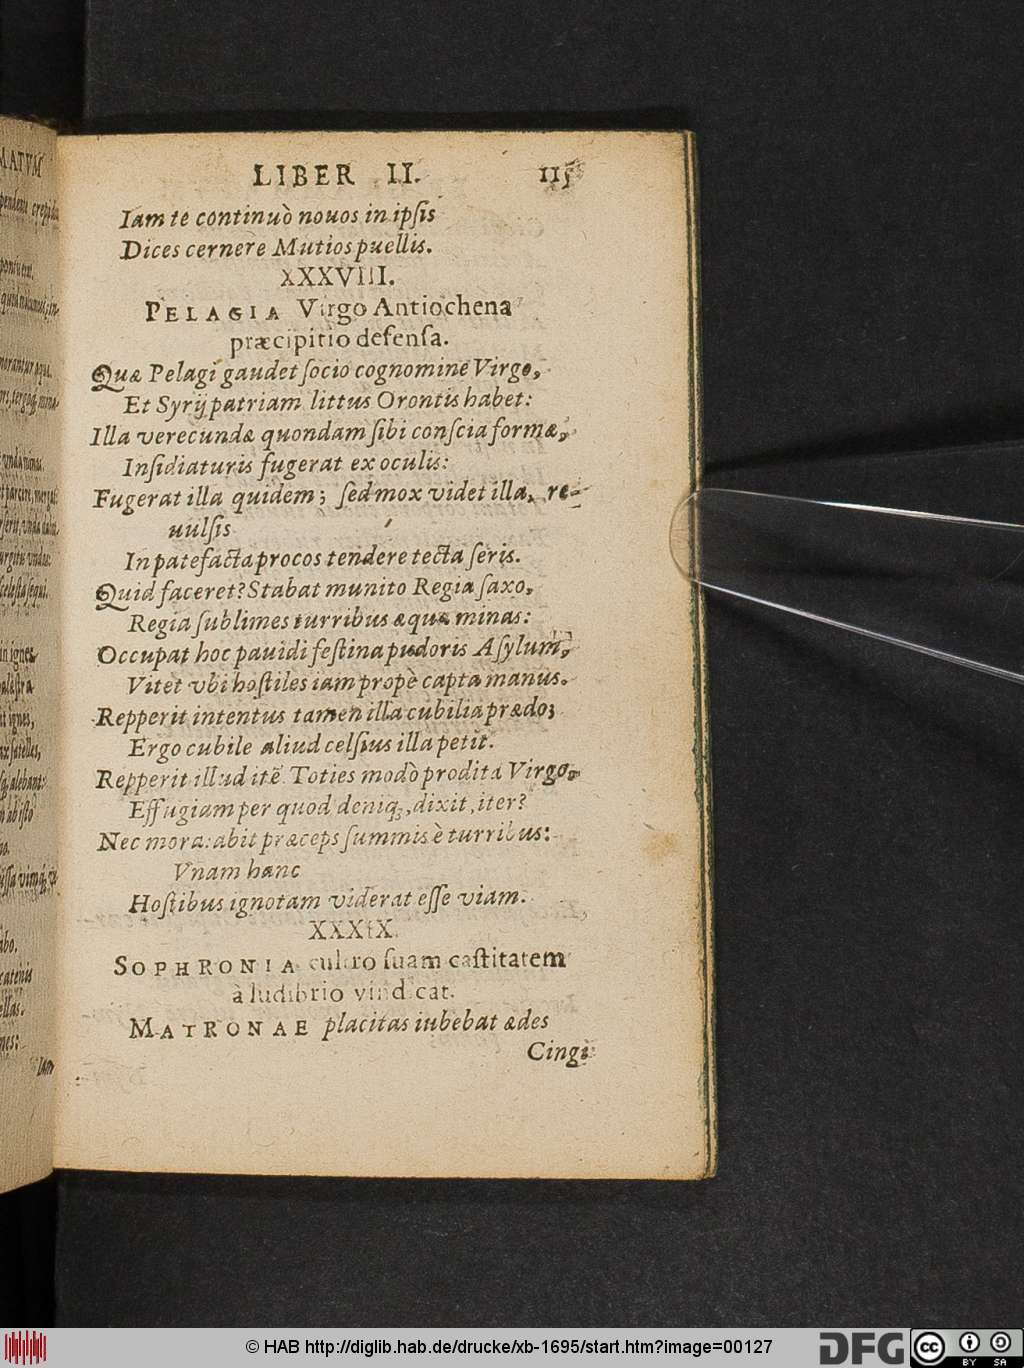 LIBER II. 115
Iam te continuò nouos in ipſis
Dices cernere Mutios puellis.
XXXVIII.
PELAGIA Virgo Antiochena
præcipitio defenſa.
Quæ Pelagi gaudet ſocio cognomine Virgo,
Et Syrij patriam littus Orontis habet:
Illa verecundæ quondam ſibi conſcia formæ,
Inſidiaturis fugerat ex oculis:
Fugerat illa quidem; ſed mox videt illa, re-
uulſis
In patefacta procos tendere tecta ſeris.
Quid faceret? Stabat munito Regia ſaxo,
Regia ſublimes turribus æqua minas:
Occupat hoc pauidi feſtina pudoris Aſylum,
Vitet vbi hoſtiles iam propè capta manus.
Repperit intentus tamen illa cubilia prædo;
Ergo cubile aliud celſius illa petit.
Repperit illud itẽ. Toties modò prodita Virgo,
Effugiam per quod deniq;, dixit, iter?
Nec mora: abit præceps ſummis è turribus:
Vnam hanc
Hoſtibus ignotam viderat eſſe viam.
XXXIX.
SOPHRONIA cultro ſuam caſtitatem
à ludibrio vindicat.
MATRONAE placitas iubebat ædes
Cingi
MATVM
Iam
© HAB http://diglib.hab.de/drucke/xb-1695/start.htm?image=00127
DFG
cc BY SA